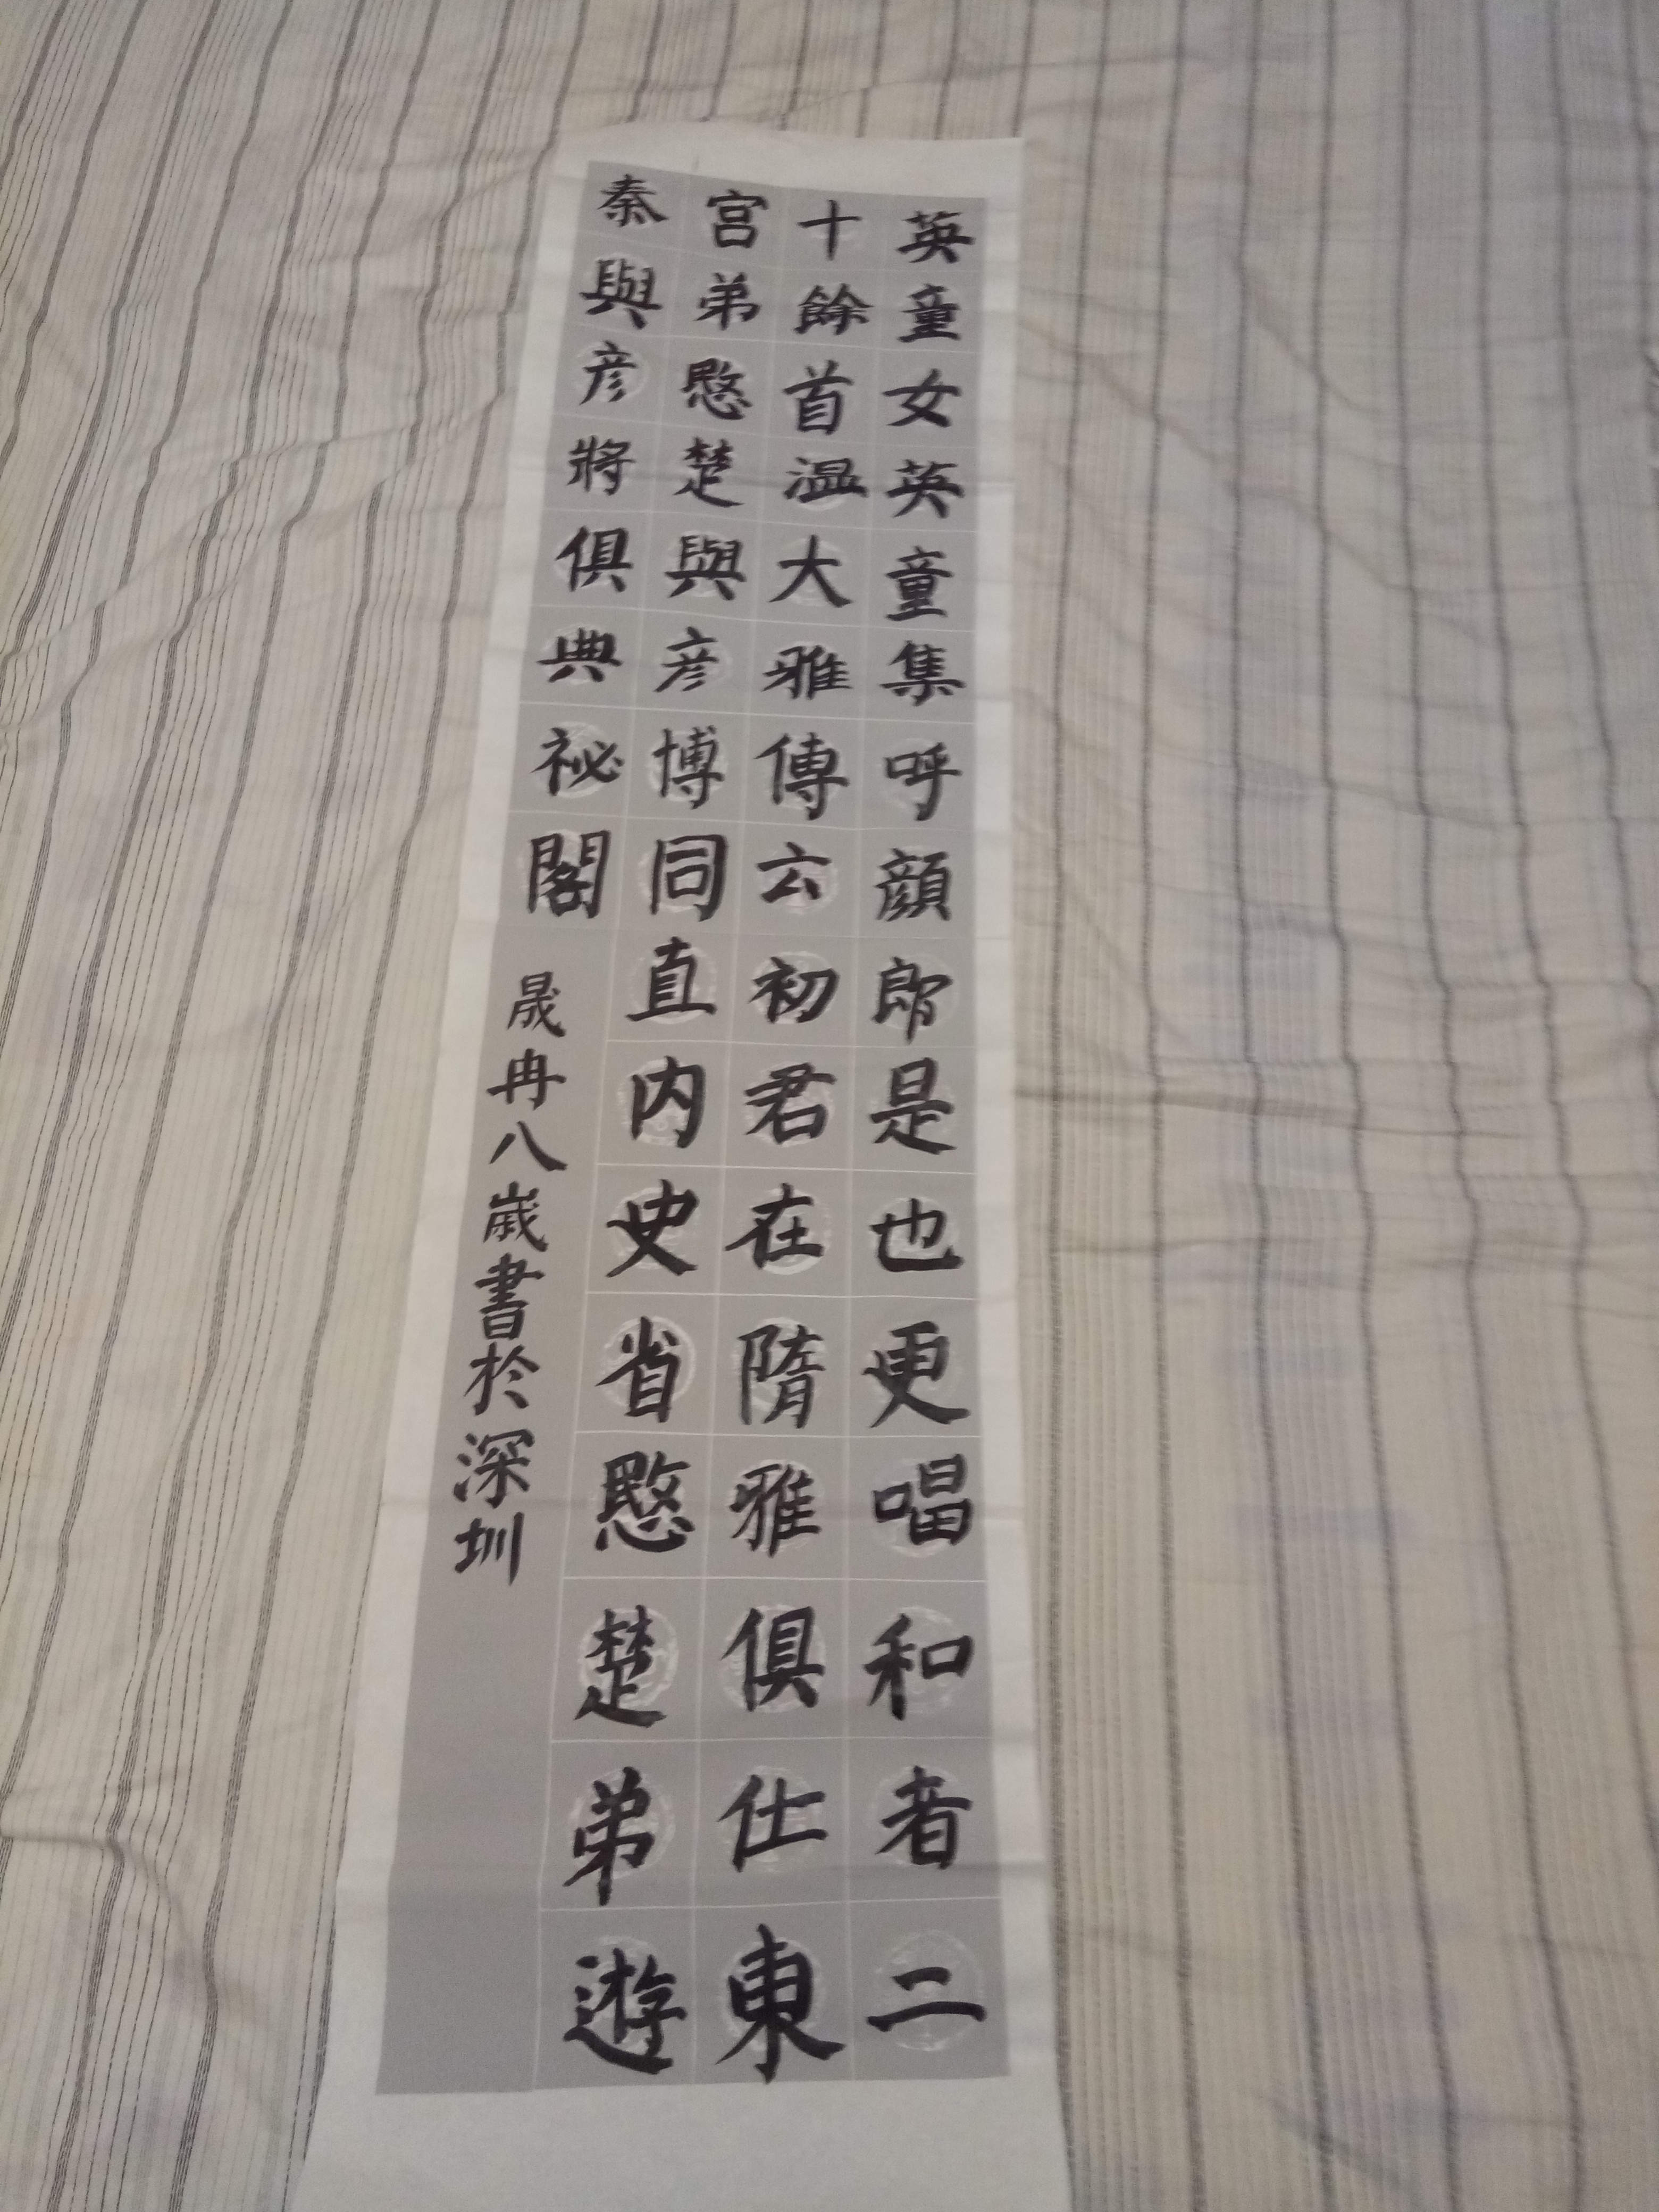 英童女英童集呼顔郎是也更唱和者二
十餘首温大雅傳云初君在隋雅俱仕東
宫弟愍楚與彦博同直内史省愍楚弟遊
秦與彦將俱典祕閣
晟冉八歲書於深圳